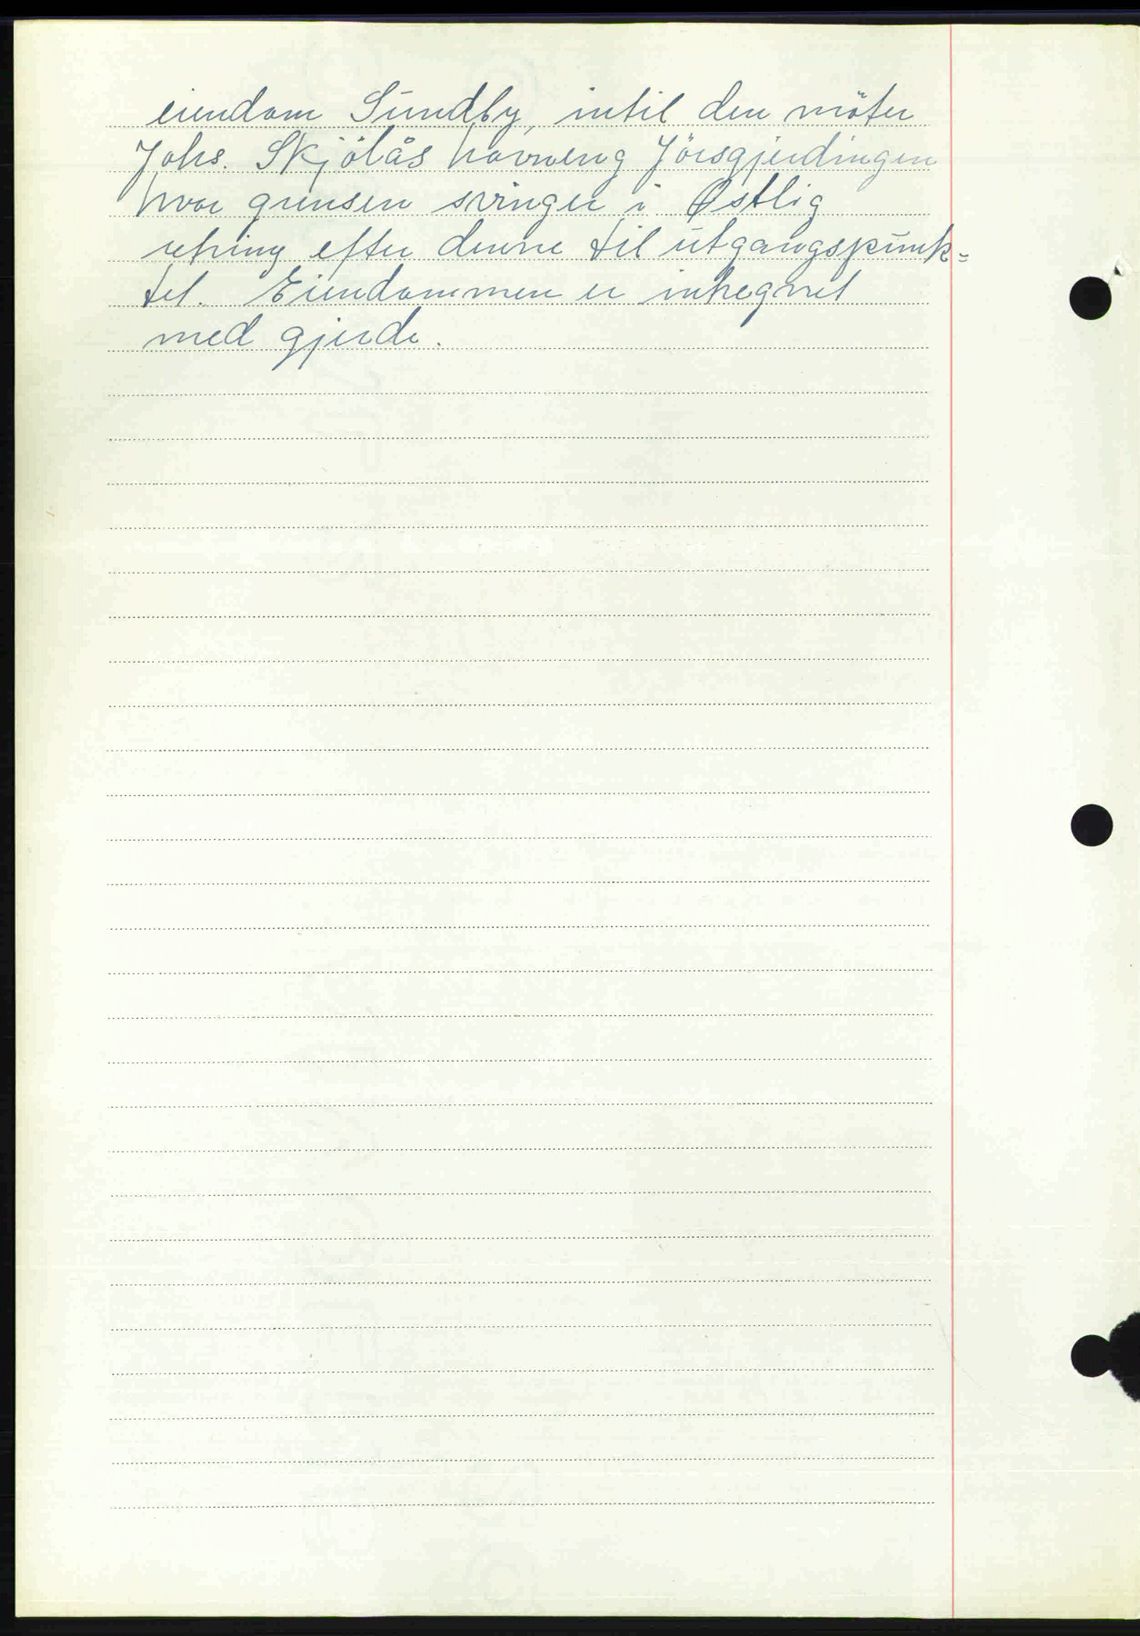 eiendom Sundby, intil den möter
Johs. Skjölås havneng Jörsgjerdingen
hvor grensen svinger i Østlig
retning efter denne til utgangspunk=
tet. Eiendommen er inhegnet
med gjerde.